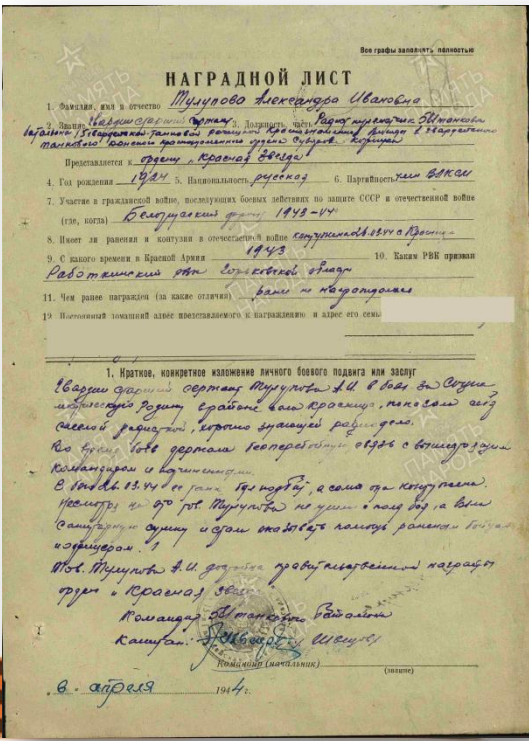 Все графы заполнять полностью
НАГРАДНОЙ ЛИСТ
1. Фамилия, имя и отчество Тулупова Александра Ивановна
2. Звание Гвардии старший сержант 3. Должность, часть Радиотелеграфист 3 танкового
батальона 15 гвардейской танковой речицкой Краснознаменной бригады 1 гвардейского
танкового Донского краснознаменного ордена Суворова корпуса
Представляется к ордену „Красная Звезда"
4. Год рождения 1924 5. Национальность русская 6. Партийность член ВЛКСМ
7. Участие в гражданской войне, последующих боевых действиях по защите СССР и отечественной войне
(где, когда) Белорусский фронт 1943-44
8. Имеет ли ранения и контузии в отечественной войне контужена 26.03.44 с Красница
9. С какого времени в Красной Армии 1943 10. Каким РВК призван
Работкинский РВК Горьковской области
11. Чем ранее награжден (за какие отличия) ранее не награждалась
12. Постоянный домашний адрес представляемого к награждению и адрес его семьи
1. Краткое, конкретное изложение личного боевого подвига или заслуг
Гвардии старший сержант Тулупова А.И. в боях за Социа-
листическую Родину в районе села Красница, показала себя
смелой радисткой, хорошо знающей радиодело.
Во время боев держала бесперебойную связь с вышестоящим
командиром и подчиненными.
В бою 26.03.44 ее танк был подбит, а сама она контужена.
Несмотря на это тов. Тулупова не ушла с поля боя, а взяла
Санитарную сумку и стала оказывать помощь раненым бойцам
и офицерам.
Тов. Тулупова А.И. достойна правительственной награды
орден „Красная звезда"
Командир 3 танкового батальона
Капитан: Швецов
Командир (начальник)
(звание)
„6" апреля 1944 г.
ПАМЯТЬ НАРОДА